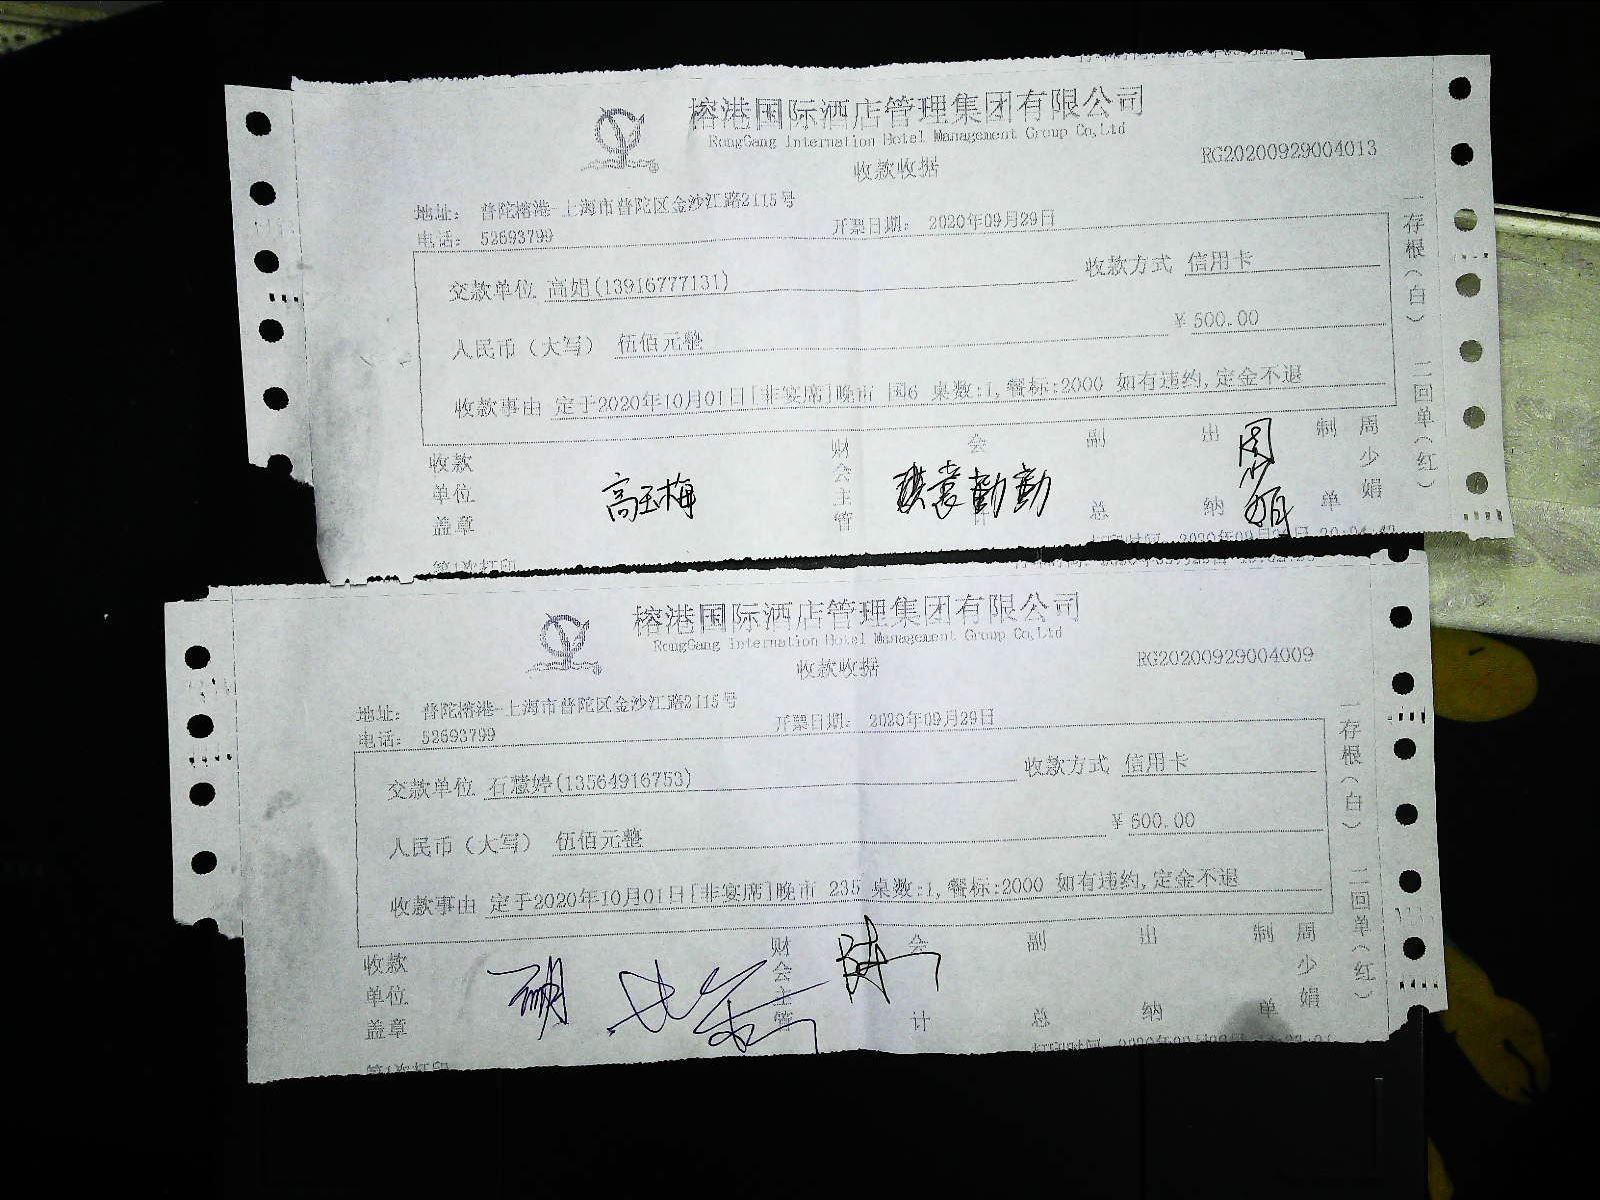 榕港国际酒店管理集团有限公司
RongGang Internation Hotel Management Group Co,Ltd
收款收据
RG20200929004013
地址： 普陀榕港-上海市普陀区金沙江路2115号
电话： 52693799
开票日期： 2020年09月29日
交款单位 高娟(13916777131) 收款方式 信用卡
人民币（大写） 伍佰元整 ￥500.00
收款事由 定于2020年10月01日[非宴席]晚市 国6 桌数:1,餐标:2000 如有违约,定金不退
收款单位盖章 高玉梅 财会主管 会计 副总 出纳 制单 周少娟
一存根（白） 二回单（红）
第1次打印
榕港国际酒店管理集团有限公司
RongGang Internation Hotel Management Group Co,Ltd
收款收据
RG20200929004009
地址： 普陀榕港-上海市普陀区金沙江路2115号
电话： 52693799
开票日期： 2020年09月29日
交款单位 石慧婷(13564916753) 收款方式 信用卡
人民币（大写） 伍佰元整 ￥500.00
收款事由 定于2020年10月01日[非宴席]晚市 235 桌数:1,餐标:2000 如有违约,定金不退
收款单位盖章 财会主管 会计 副总 出纳 制单 周少娟
一存根（白） 二回单（红）
第1次打印